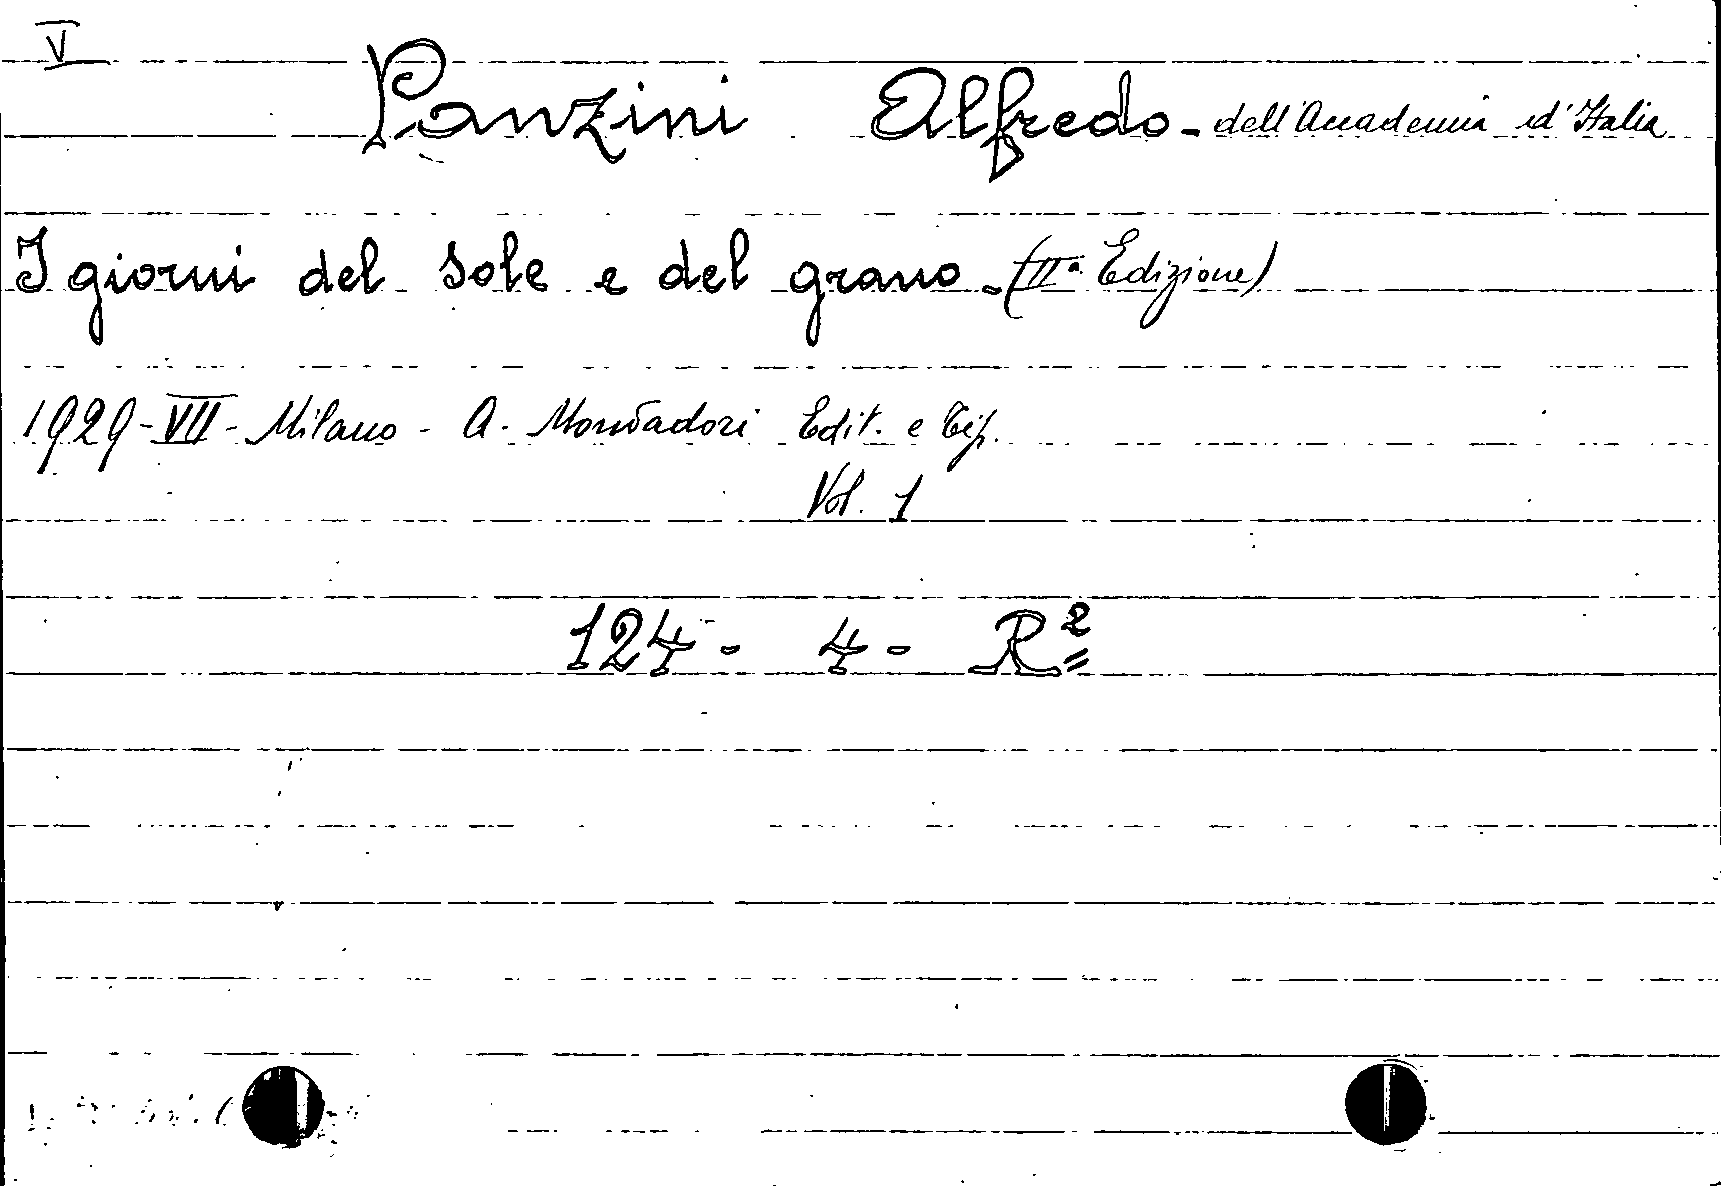 V
Panzini Alfredo - dell'Accademia d'Italia
I giorni del sole e del grano - (IIª Edizione)
1929 - VII - Milano - A. Mondadori Edit. e Tip.
Vol. 1
124 - 4 - R²